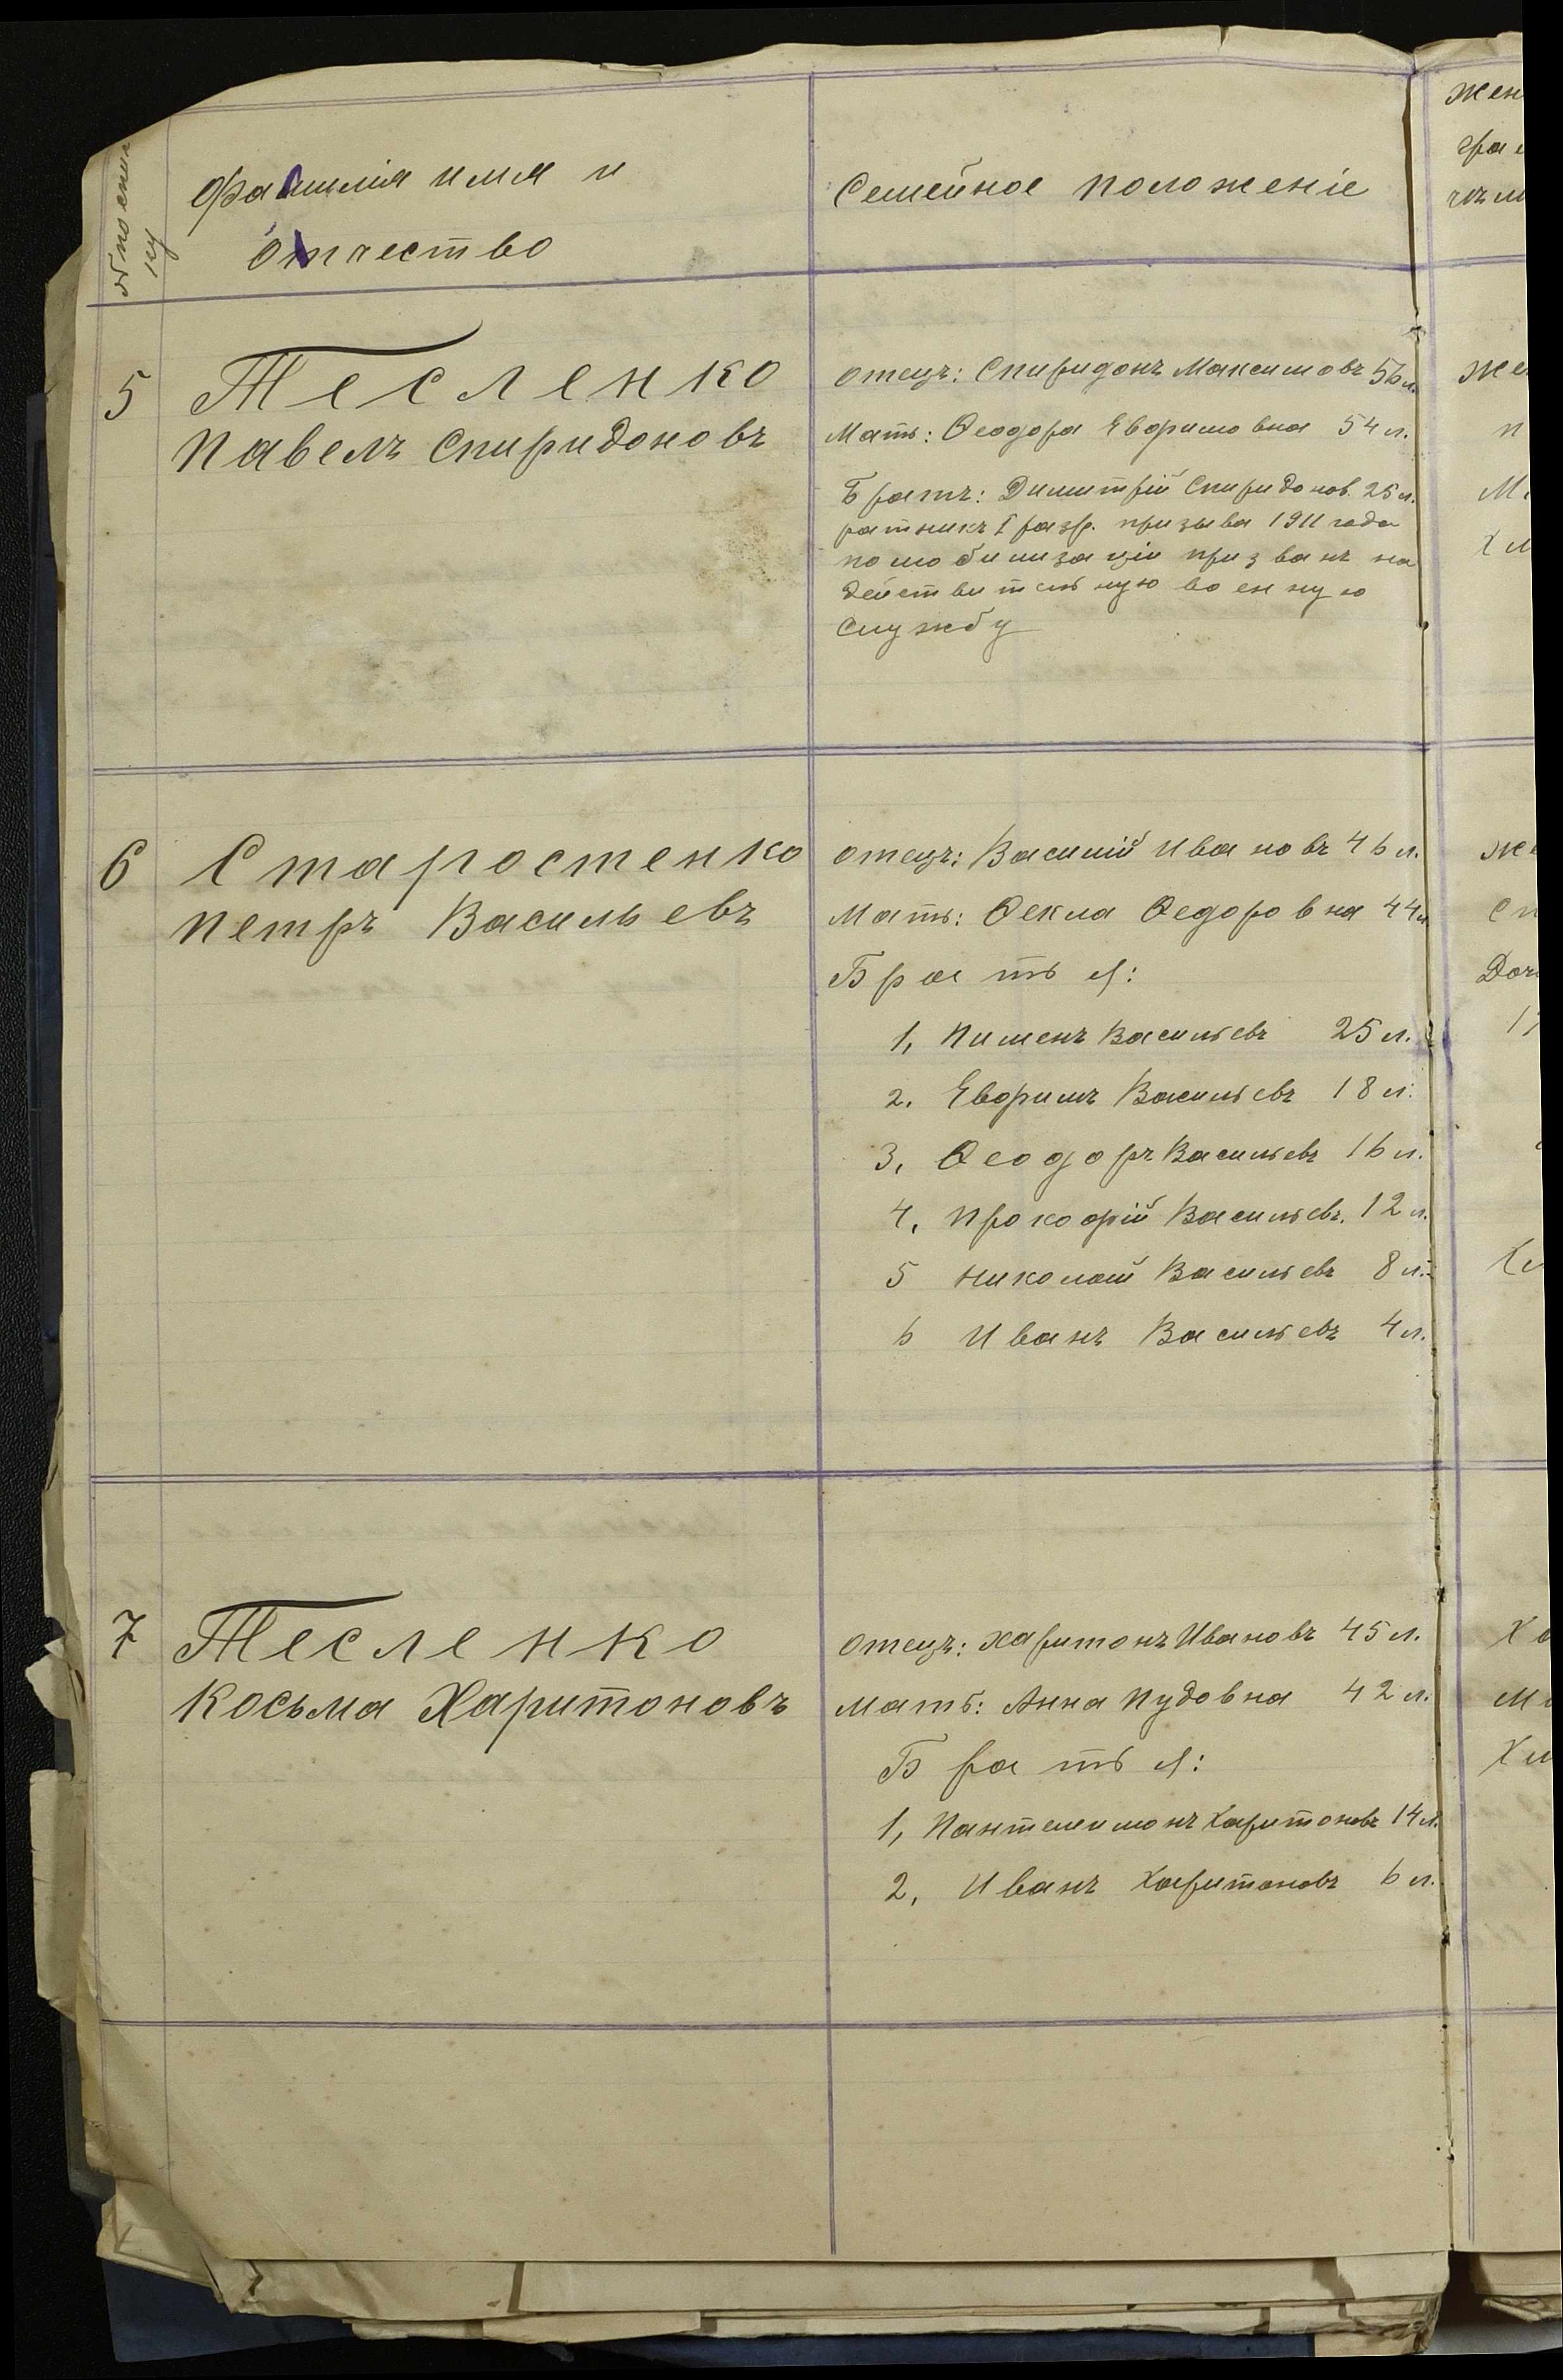 № по списку
Фамилія имя и
отчество
Семейное положеніе
5
Тесленко
Павелъ Спиридоновъ
отецъ: Спиридонъ Максимовъ 56 л.
Мать: Ѳеодора Евфимовна 54 л.
Братъ: Димитрій Спиридонов. 25 л.
ратникъ I разр. призыва 1911 года
по мобилизаціи призванъ на
действительную военную
службу
6
Старостенко
Петръ Васильевъ
отецъ: Василій Ивановъ 46 л.
Мать: Ѳекла Ѳедоровна 44 л.
Братья:
1, Пименъ Васильевъ 25 л.
2. Евфимъ Васильевъ 18 л.
3, Ѳеодоръ Васильевъ 16 л.
4, Прокофій Васильевъ. 12 л.
5 Николай Васильевъ 8 л.
6 Иванъ Васильевъ 4 л.
7
Тесленко
Косьма Харитоновъ
отецъ: Харитонъ Ивановъ 45 л.
мать: Анна Пудовна 42 л.
Братья:
1, Пантелеимонъ Харитоновъ 14 л.
2, Иванъ Харитоновъ 6 л.